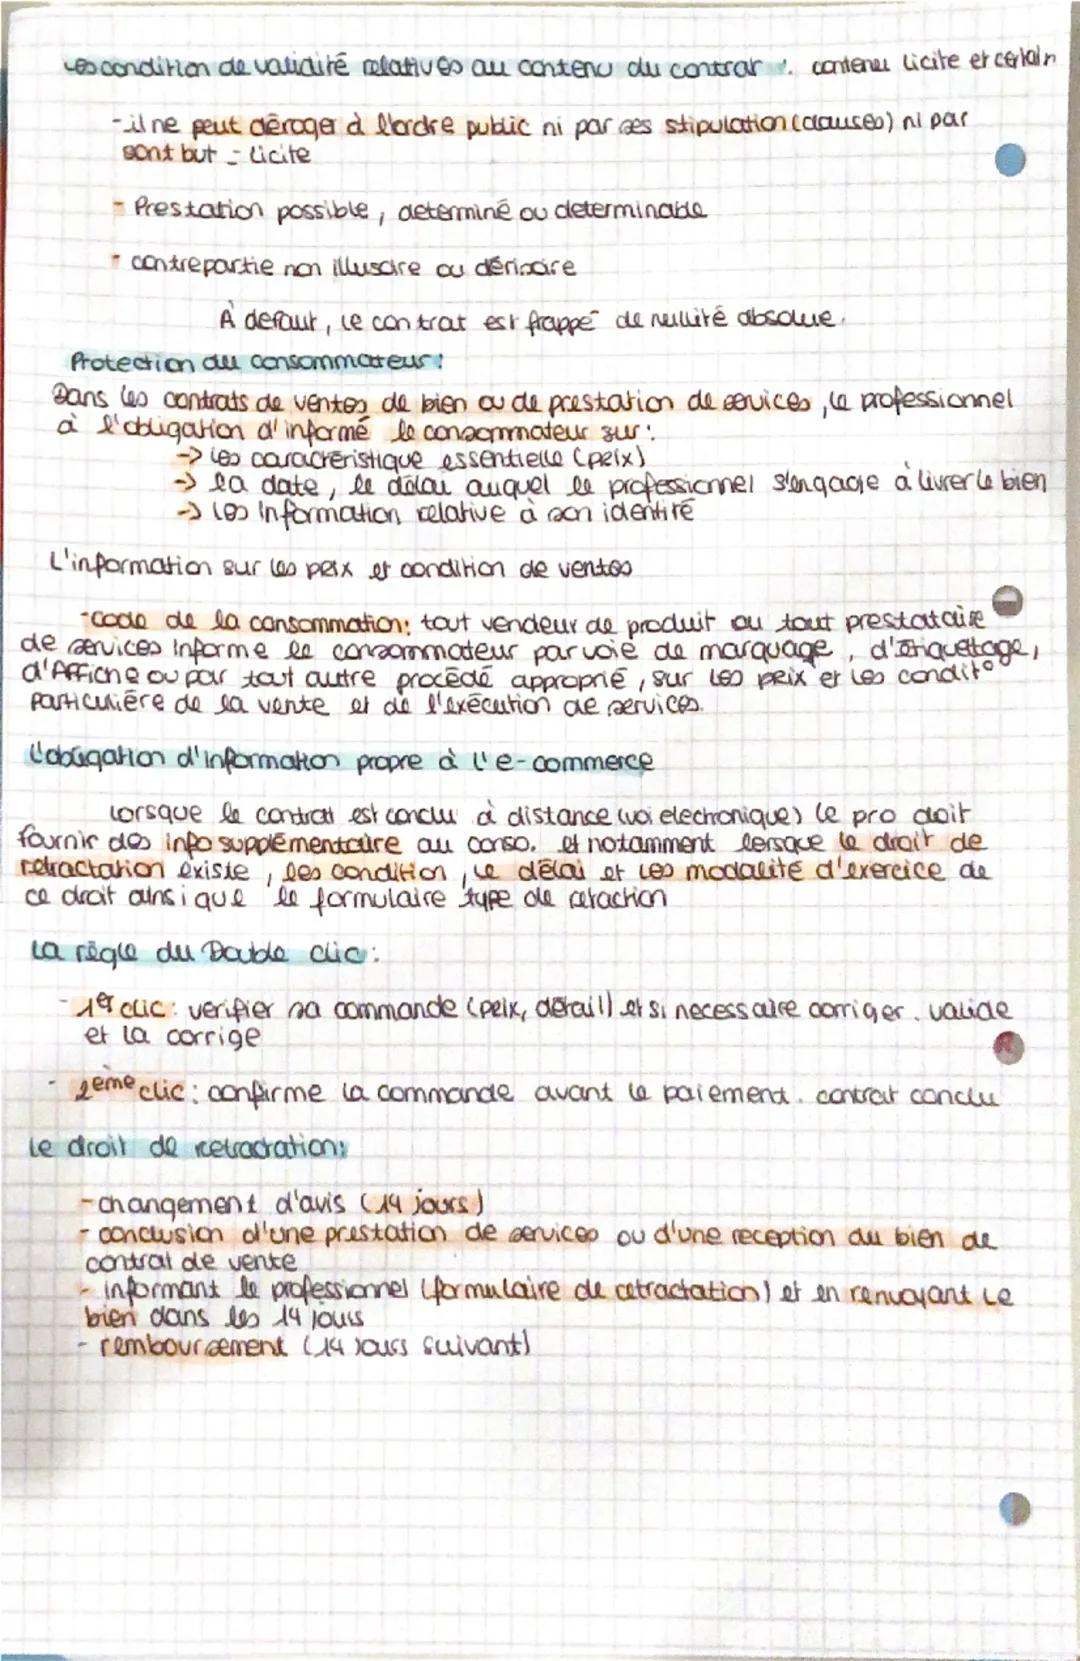 Les condition de validité relatives au contenu du contrat : contenu licite et certain
- il ne peut déroger à l'ordre public ni par ses stipulation (clauses) ni par
sont but - licite
- Prestation possible, determiné ou determinable
- contrepartie non illusoire ou dérisoire
À defaut, le contrat est frappé de nullité absolue.
Protection du consommateur :
Dans les contrats de ventes de bien ou de prestation de services, le professionnel
à l'obligation d'informé le consommateur sur :
-> les caractéristique essentielle (prix)
-> la date, le délai auquel le professionnel s'engage à livrer le bien
-> les information relative à son identité
L'information sur les prix et condition de ventes
- code de la consommation: tout vendeur de produit ou tout prestataire
de services informe le consommateur par voie de marquage, d'étiquetage,
d'Affiche ou par tout autre procédé approprié, sur les prix et les condit°
particulière de la vente et de l'exécution de services.
L'obligation d'information propre à l'e-commerce
lorsque le contrat est conclu à distance (voi electronique) le pro doit
fournir des info supplémentaire au conso. et notamment lorsque le droit de
retractation existe, les condition, le délai et les modalité d'exercice de
ce droit ainsi que le formulaire type de retraction
La règle du Double clic :
- 1er clic : verifier sa commande (prix, détail) et si necessaire corriger. valide
et la corrige
- 2ème clic : confirme la commande avant le paiement. contrat conclu
Le droit de retractation:
- changement d'avis (14 jours)
- conclusion d'une prestation de services ou d'une reception du bien de
contrat de vente
- informant le professionnel (formulaire de retractation) et en renvoyant le
bien dans les 14 jours
- remboursement (14 jours suivant)